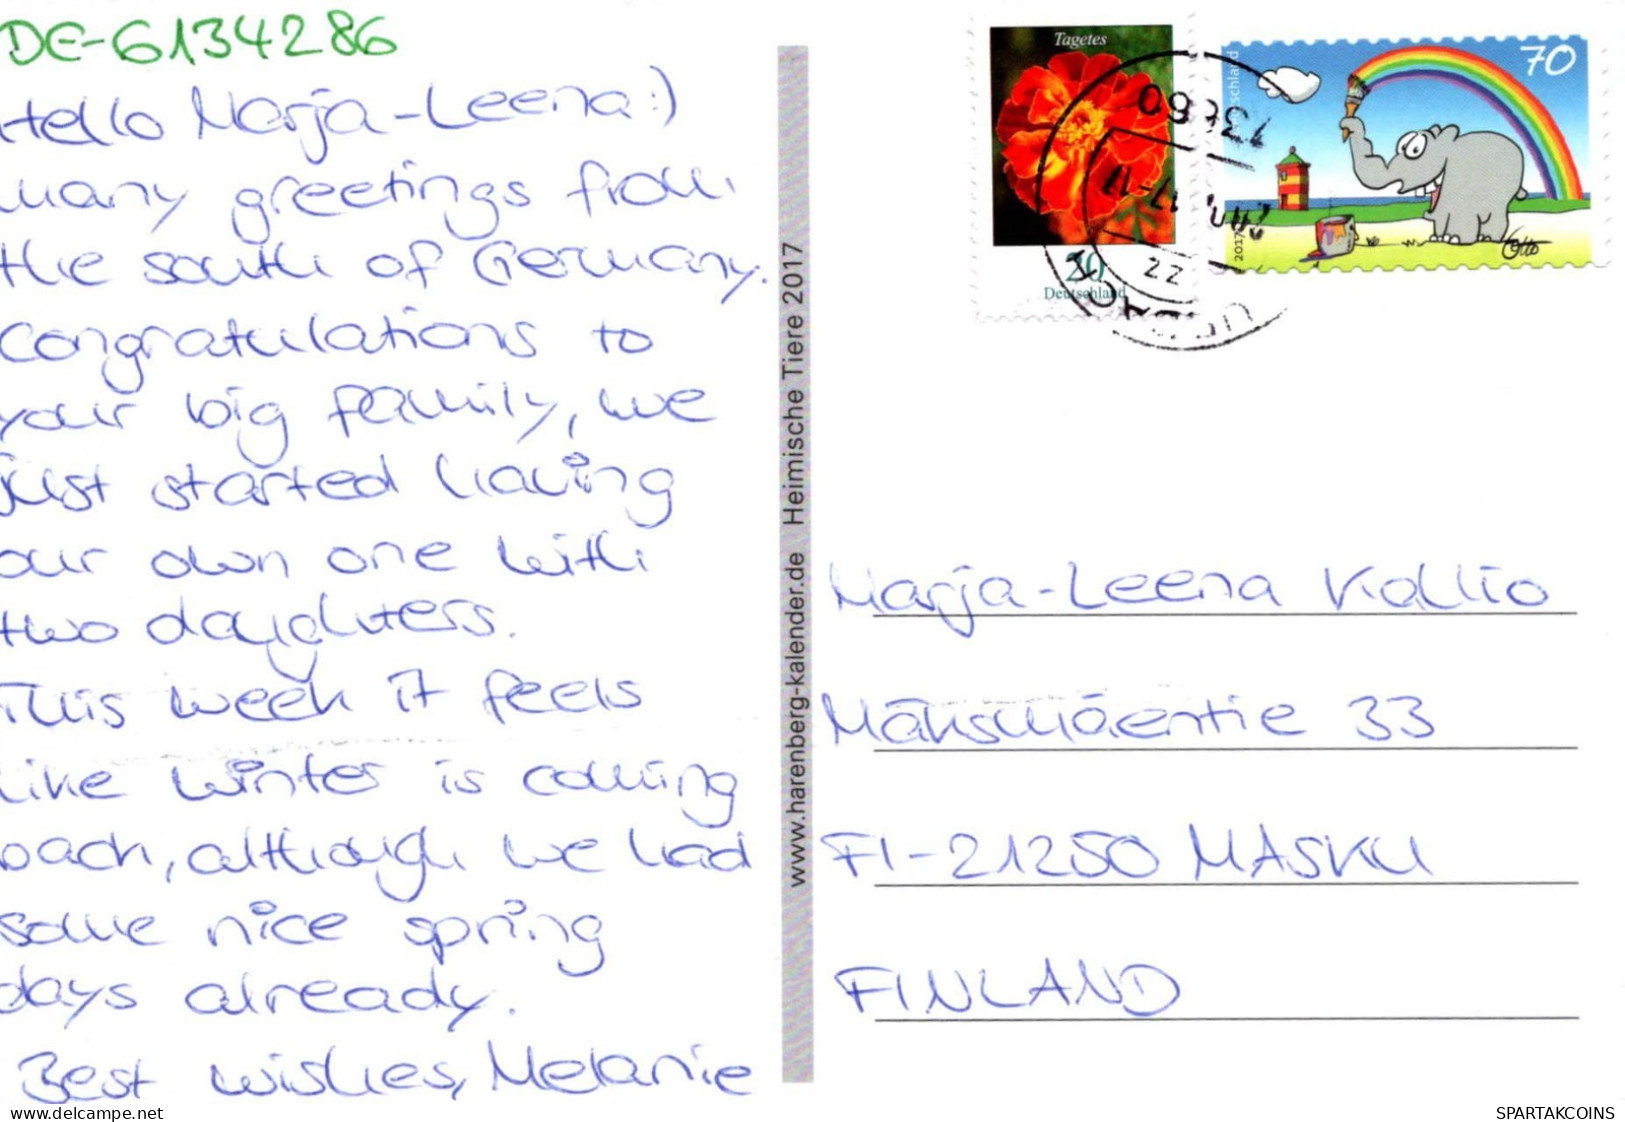 DE-6134286
Hello Marja-Leena :)
many greetings from
the south of Germany.
Congratulations to
your big family, we
just started having
our own one with
two daughters.
This week it feels
like winter is coming
back, although we had
some nice spring
days already.
Best wishes, Melanie
www.harenberg-kalender.de Heimische Tiere 2017
Tagetes
20
Deutschland
70
Deutschland
2017
Otto
22
Marja-Leena Kallio
Mäksmäentie 33
FI-21250 MASKU
FINLAND
delcampe.net
SPARTAKCOINS